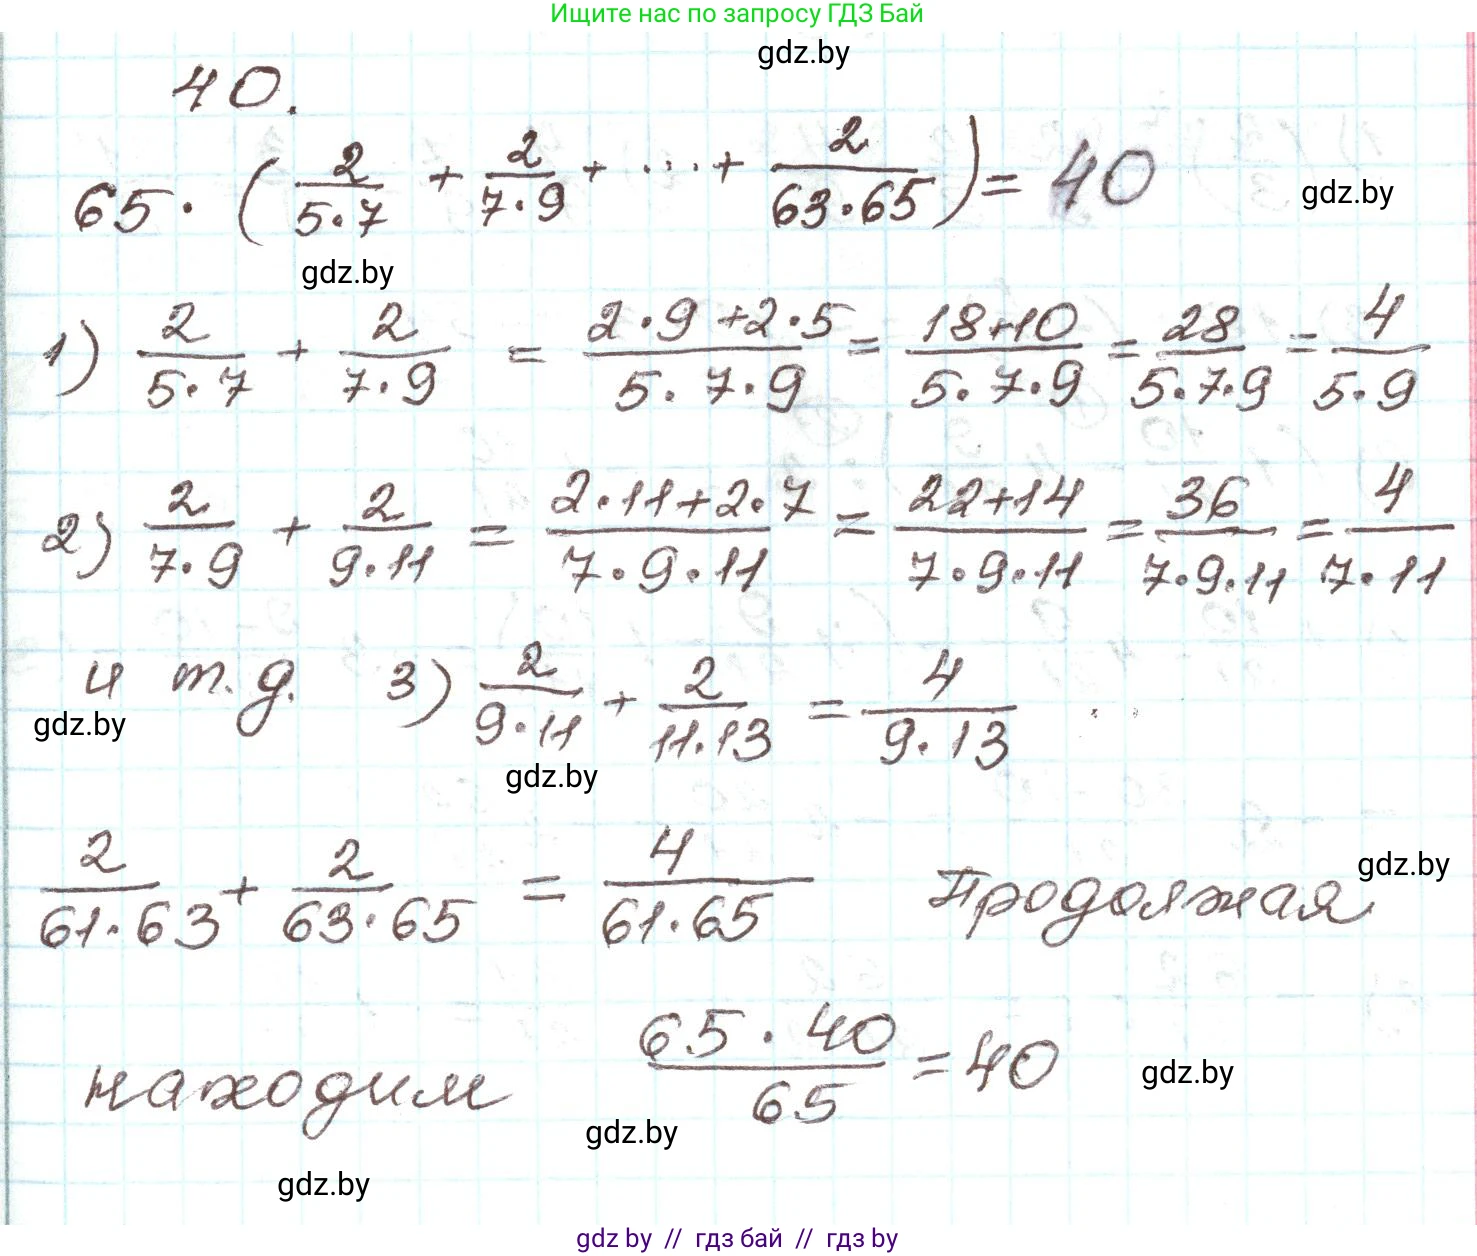 Ищите нас по запросу ГДЗ Бай
gdz.by
40.
65 · (2/(5·7) + 2/(7·9) + ... + 2/(63·65)) = 40
gdz.by
gdz.by
1) 2/(5·7) + 2/(7·9) = (2·9+2·5)/(5·7·9) = (18+10)/(5·7·9) = 28/(5·7·9) = 4/(5·9)
2) 2/(7·9) + 2/(9·11) = (2·11+2·7)/(7·9·11) = (22+14)/(7·9·11) = 36/(7·9·11) = 4/(7·11)
и т.д. 3) 2/(9·11) + 2/(11·13) = 4/(9·13)
gdz.by
gdz.by
2/(61·63) + 2/(63·65) = 4/(61·65) Продолжая
gdz.by
находим (65·40)/65 = 40
gdz.by
gdz.by
gdz.by
gdz by // гдз бай // гдз by